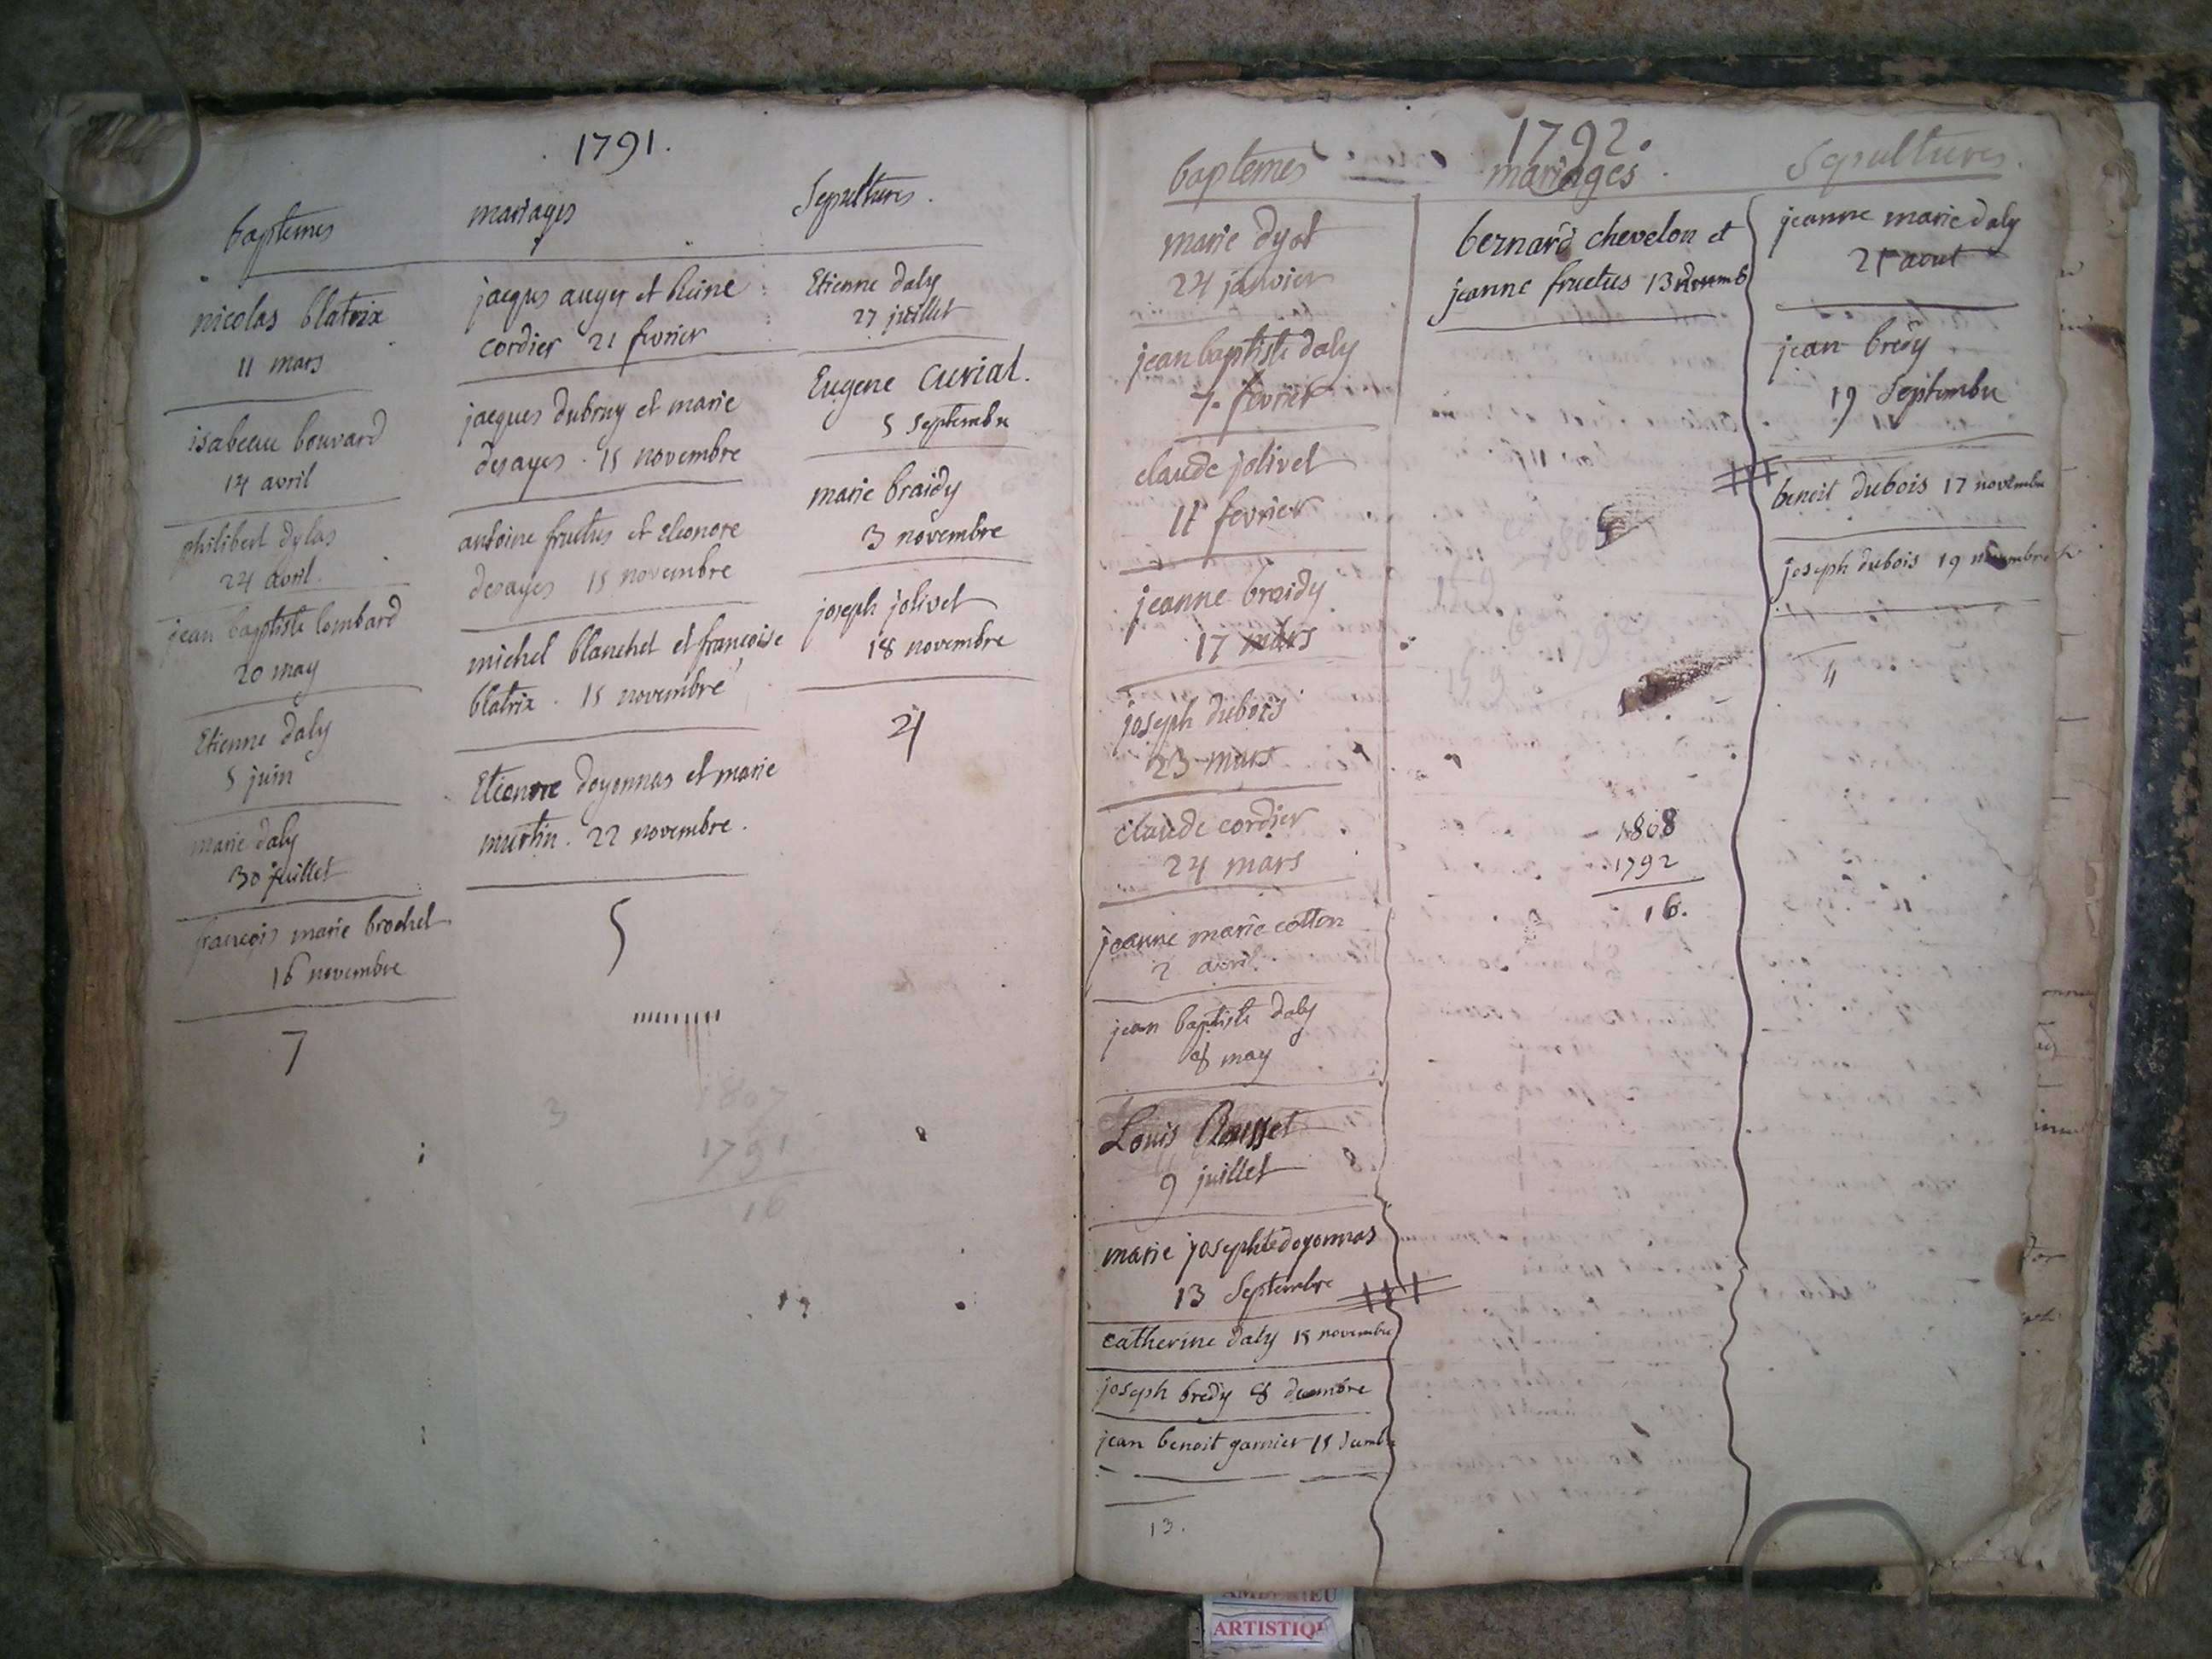 1791.
baptemes
nicolas blatrix
11 mars
isabeau bouvard
14 avril
philibert dylas
24 avril.
jean baptiste lombard
20 may
Etienne daly
5 juin
marie daly
30 juillet
françois marie brochet
16 novembre
7
mariages
jacques auger et
cordier 21 fevrier
jacques dubruy et marie
desayes. 15 novembre
antoine fructus et Eleonore
desayes 15 novembre
michel blanchet et françoise
blatrix. 15 novembre
doyonnas et marie
martin. 22 novembre.
5
3
1807
1791
16
Sepultures.
Etienne daly
27 juillet
Eugene Curial.
5 Septembre
marie braidy
3 novembre
joseph jolivet
18 novembre
4
1792.
baptemes
marie dyot
24 janvier
jean baptiste daly
7. fevrier
claude jolivet
fevrier
jeanne braidy
17 mars
joseph dubois
23 mars
claude cordier
24 mars
jeanne marie cotton
2 avril.
jean baptiste daly
8 may
Louis Rousset
9 juillet
marie josephte doyonnas
13 Septembre
catherine daly 15 novembre
joseph bredy 8 decembre
jean benoit garnier 15
13.
mariages.
bernard chevelon et
jeanne fructus 13
1808
1792
16.
Sepultures.
jeanne marie daly
aout
jean bredy
19 Septembre
benoit dubois 17 novembre
joseph dubois 19 novembre
4
ARTISTIQ